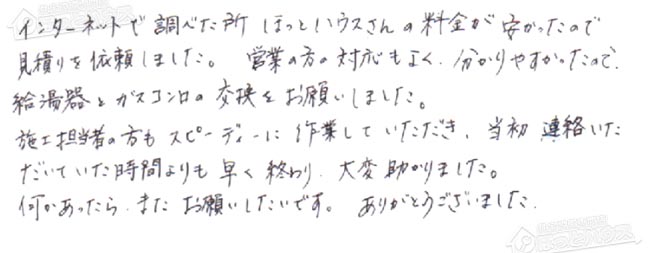 インターネットで調べた所 ほっとハウスさんの料金が安かったので
見積りを依頼しました。 営業の方の対応もよく、分かりやすかったので、
給湯器とガスコンロの交換をお願いしました。
施工担当者の方もスピーディーに作業していただき、当初連絡いた
だいていた時間よりも早く終わり、大変助かりました。
何かあったら、またお願いしたいです。 ありがとうございました。